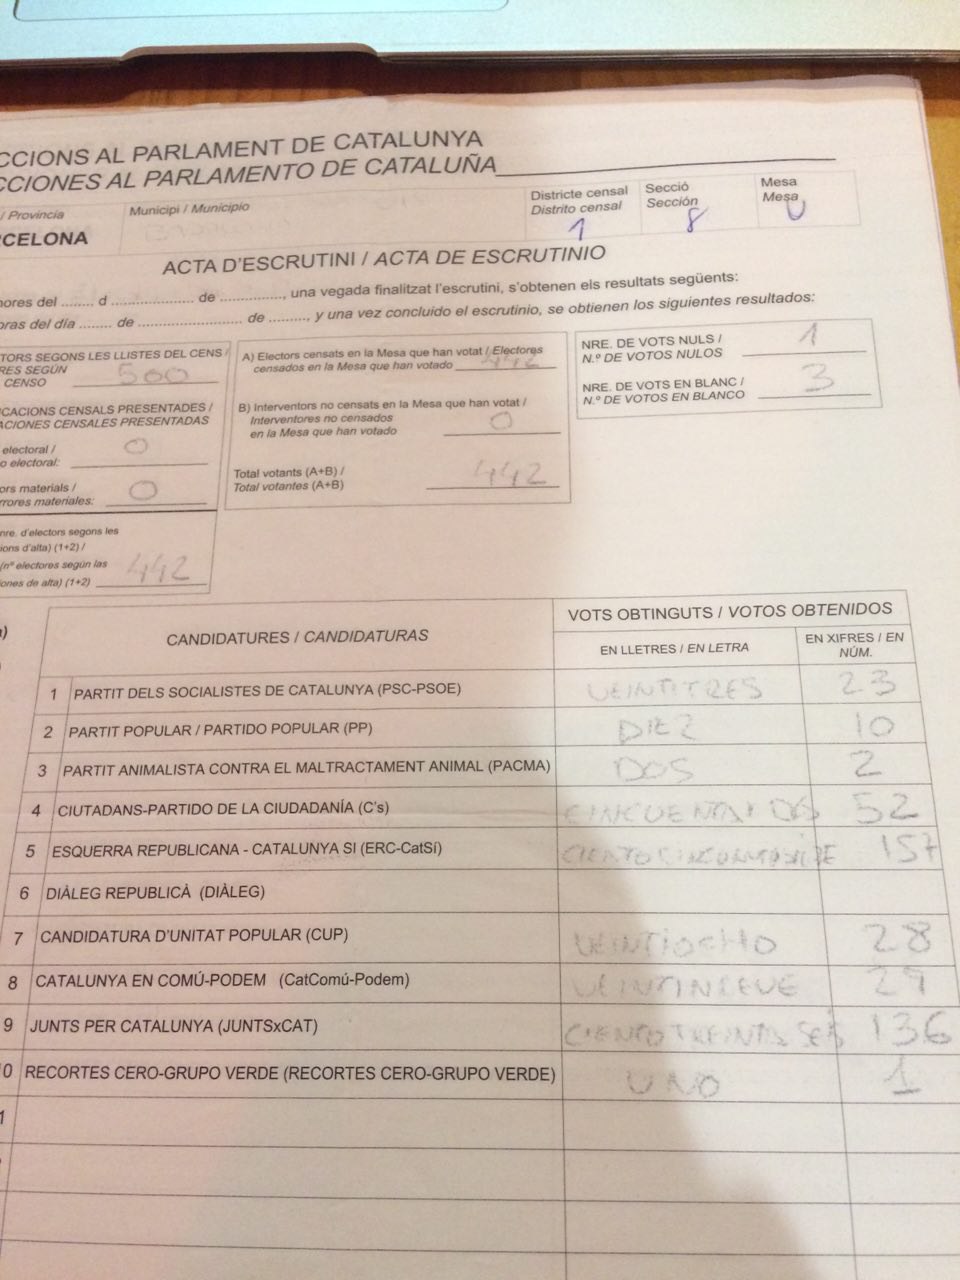 CCIONS AL PARLAMENT DE CATALUNYA
CCIONES AL PARLAMENTO DE CATALUÑA
/ Provincia
RCELONA
Municipi / Municipio
Districte censal
Distrito censal
1
Secció
Sección
8
Mesa
Mesa
U
ACTA D'ESCRUTINI / ACTA DE ESCRUTINIO
hores del ........ d ..................... de ................, una vegada finalitzat l'escrutini, s'obtenen els resultats següents:
oras del día ........ de .......................... de ........., y una vez concluido el escrutinio, se obtienen los siguientes resultados:
TORS SEGONS LES LLISTES DEL CENS /
RES SEGÚN
CENSO 500
ICACIONS CENSALS PRESENTADES /
ACIONES CENSALES PRESENTADAS
electoral /
o electoral: 0
ors materials /
rrores materiales: 0
nre. d'electors segons les
ions d'alta) (1+2) /
(nº electores según las
ones de alta) (1+2) 442
A) Electors censats en la Mesa que han votat / Electores
censados en la Mesa que han votado 442
B) Interventors no censats en la Mesa que han votat /
Interventores no censados
en la Mesa que han votado 0
Total votants (A+B) /
Total votantes (A+B) 442
NRE. DE VOTS NULS /
N.º DE VOTOS NULOS 1
NRE. DE VOTS EN BLANC /
N.º DE VOTOS EN BLANCO 3
CANDIDATURES / CANDIDATURAS
VOTS OBTINGUTS / VOTOS OBTENIDOS
EN LLETRES / EN LETRA
EN XIFRES / EN NÚM.
1 PARTIT DELS SOCIALISTES DE CATALUNYA (PSC-PSOE) VEINTITRES 23
2 PARTIT POPULAR / PARTIDO POPULAR (PP) DIEZ 10
3 PARTIT ANIMALISTA CONTRA EL MALTRACTAMENT ANIMAL (PACMA) DOS 2
4 CIUTADANS-PARTIDO DE LA CIUDADANÍA (C's) CINCUENTA Y DOS 52
5 ESQUERRA REPUBLICANA - CATALUNYA SI (ERC-CatSí) CIENTO 157
6 DIÀLEG REPUBLICÀ (DIÀLEG)
7 CANDIDATURA D'UNITAT POPULAR (CUP) VEINTIOCHO 28
8 CATALUNYA EN COMÚ-PODEM (CatComú-Podem) VEINTINUEVE 29
9 JUNTS PER CATALUNYA (JUNTSxCAT) CIENTO TREINTA SEIS 136
10 RECORTES CERO-GRUPO VERDE (RECORTES CERO-GRUPO VERDE) UNO 1